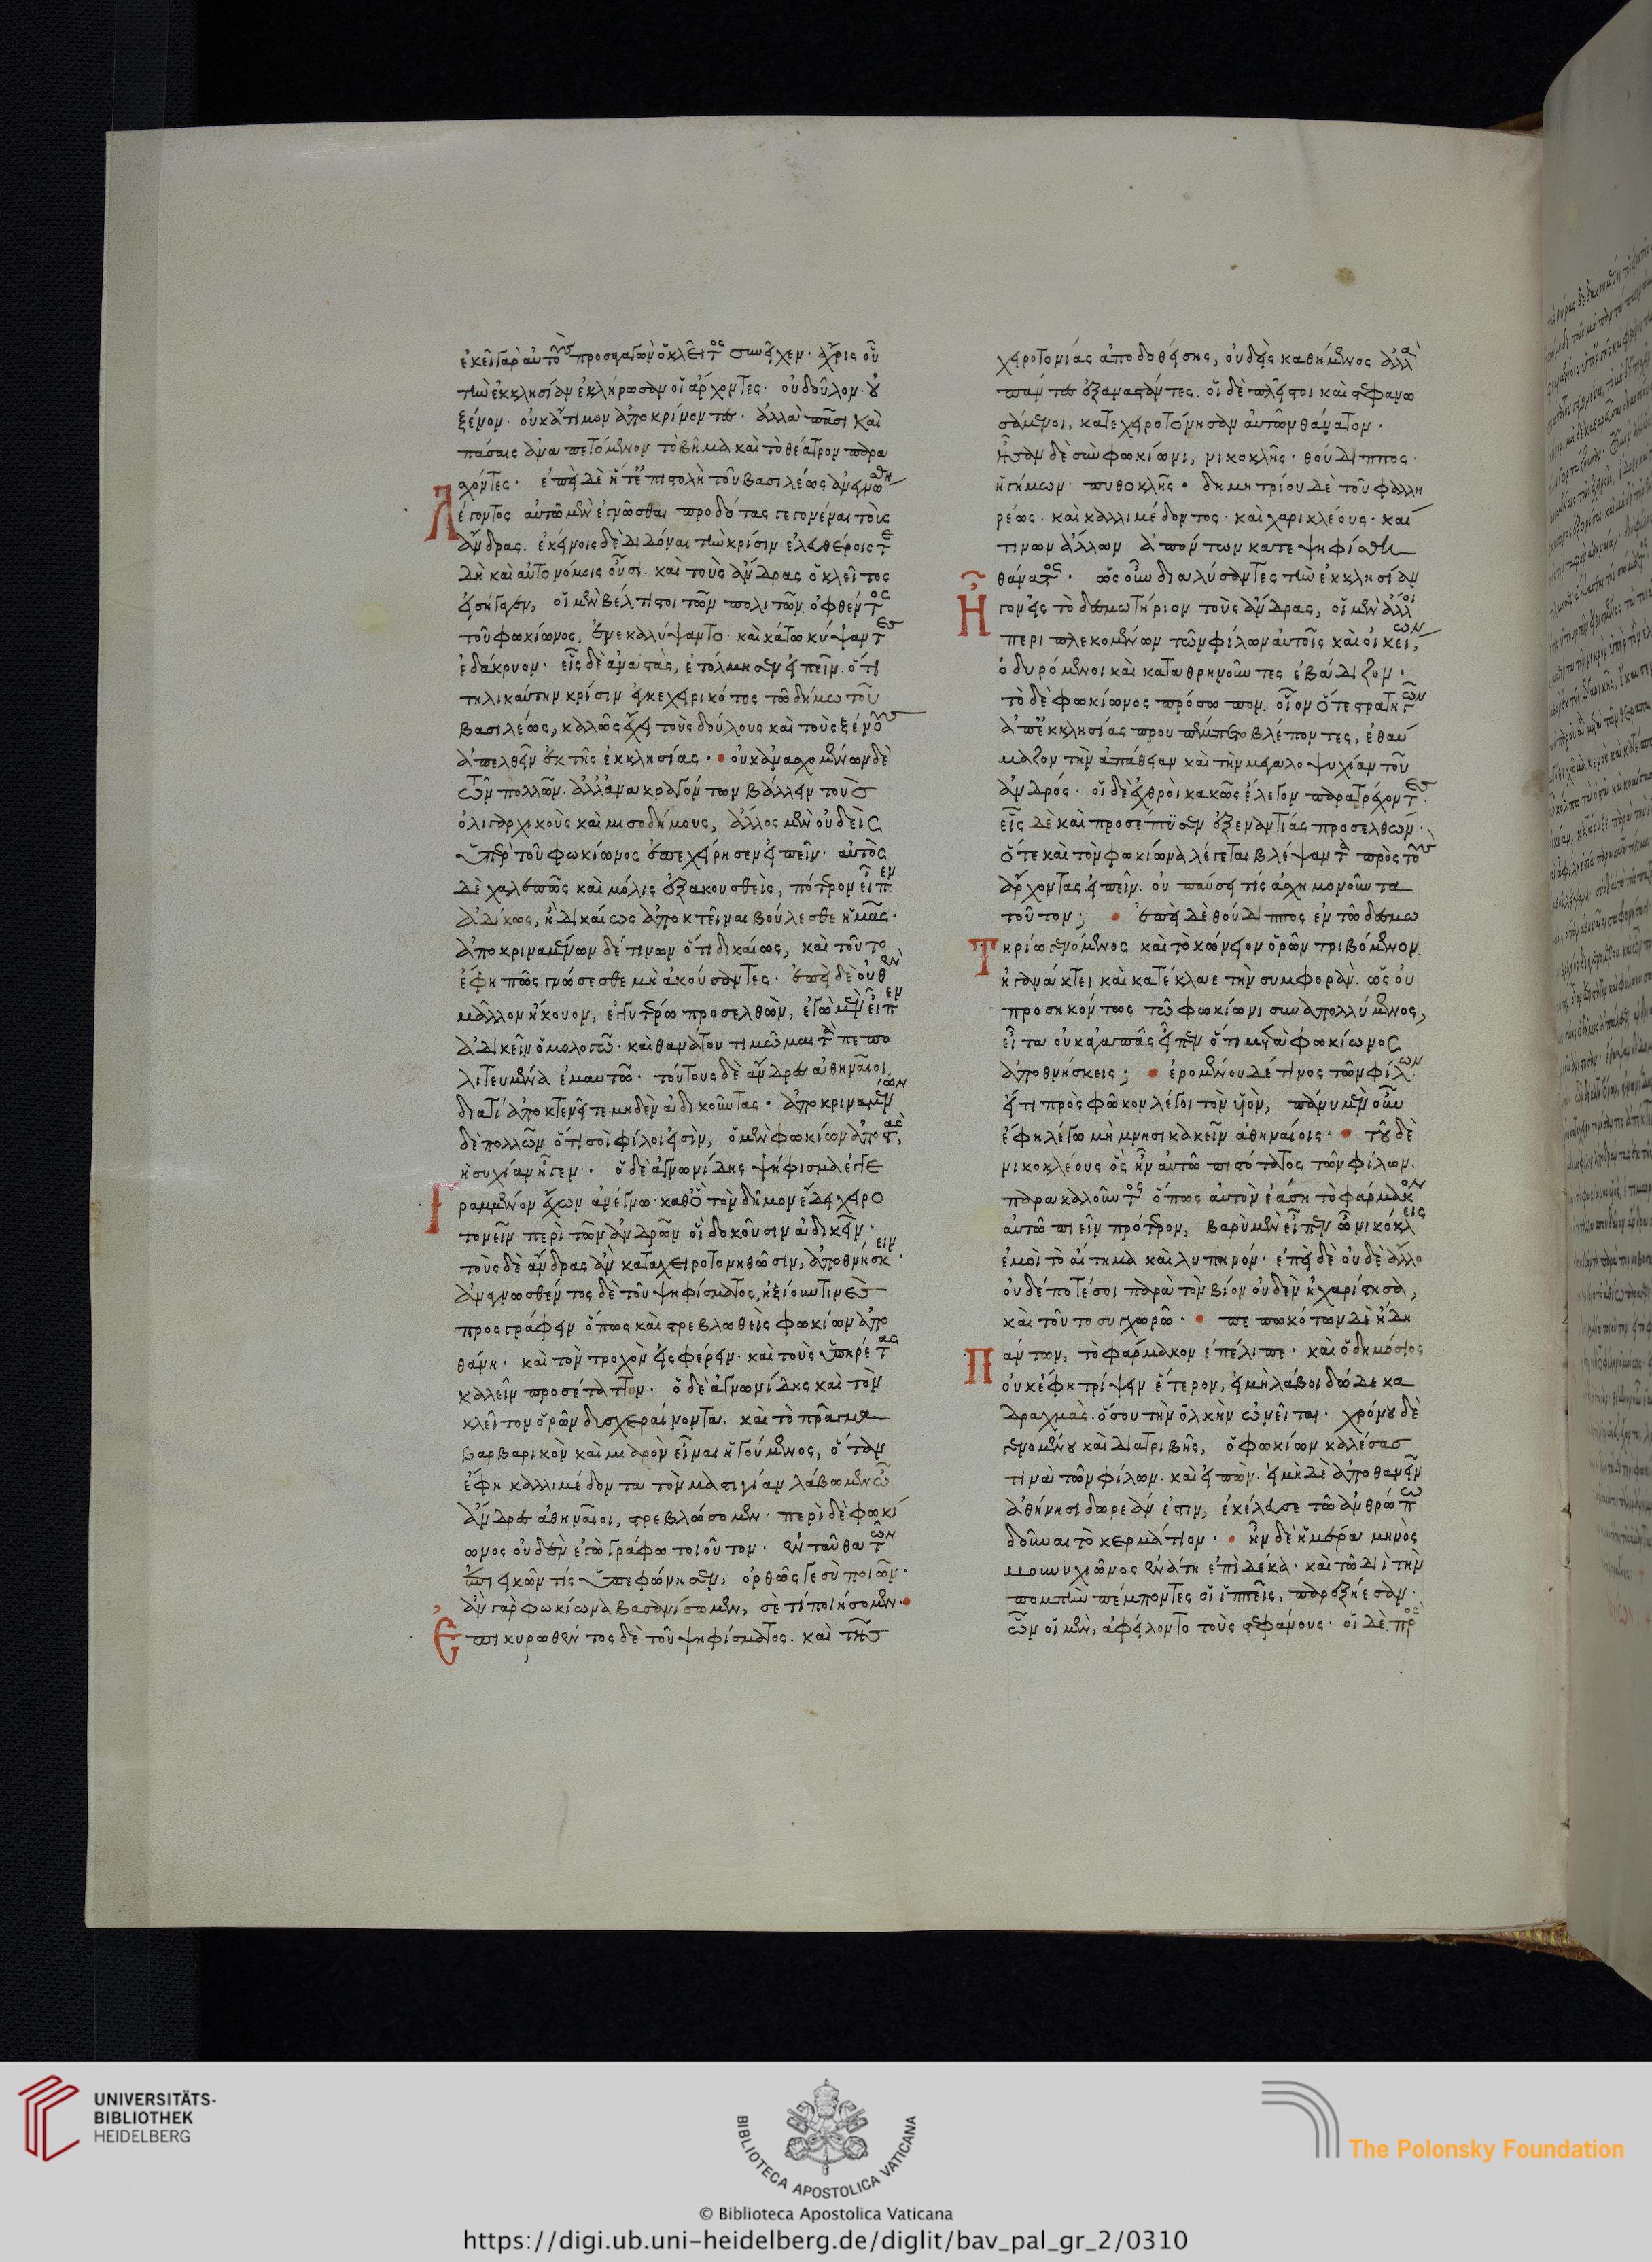 ἐκεῖ γὰρ αὐτοὺς προσαγαγὼν ὁ κλεῖτος συνεῖχεν· ἄχρις οὗ
τὴν ἐκκλησίαν ἐκλήρωσαν οἱ ἄρχοντες· οὐ δοῦλον· οὐ
ξένον· οὐκ ἄτιμον ἀποκρίνοντες· ἀλλὰ πᾶσι καὶ
πάσαις ἀναπεπταμένον τὸ βῆμα καὶ τὸ θέατρον παρα
σχόντες· ἐπεὶ δὲ ἥ τε ἐπιστολὴ τοῦ βασιλέως ἀνεγνώσθη
Λέγοντος αὐτῷ μὲν ἐγνῶσθαι προδότας γεγονέναι τοὺς
ἄνδρας. ἐκείνοις δὲ διδόναι τὴν κρίσιν ἐλευθέροις τε
δὴ καὶ αὐτονόμοις οὖσι. καὶ τοὺς ἄνδρας ὁ κλεῖτος
εἰσήγαγεν, οἱ μὲν βέλτιστοι τῶν πολιτῶν ὀφθέντος
τοῦ φωκίωνος, ἐνεκαλύψαντο· καὶ κάτω κύψαντες
ἐδάκρυον· εἷς δὲ ἀναστὰς, ἐτόλμησεν εἰπεῖν. ὅτι
τηλικαύτην κρίσιν ἐγκεχειρικότος τῶ δήμω τοῦ
βασιλέως, καλῶς ἔχει τοὺς δούλους καὶ τοὺς ξένους
ἀπελθεῖν ἐκ τῆς ἐκκλησίας· οὐκ ἀνασχομένων δὲ
τῶν πολλῶν. ἀλλ' ἀνακραγόντων βάλλειν τοὺς
ὀλιγαρχικοὺς καὶ μισοδήμους, ἄλλος μὲν οὐδεὶς
ὑπὲρ τοῦ φωκίωνος ἐπεχείρησεν εἰπεῖν· αὐτὸς
δὲ χαλεπῶς καὶ μόλις ἐξακουσθεὶς, πότερον εἶπεν
ἀδίκως, ἢ δικαίως ἀποκτεῖναι βούλεσθε ἡμᾶς·
ἀποκριναμένων δέ τινων ὅτι δικαίως, καὶ τοῦτο
ἔφη πῶς γνώσεσθε μὴ ἀκούσαντες· ἐπεὶ δὲ οὐθὲν
μᾶλλον ἤκουον, ἐγγυτέρω προσελθὼν, ἐγὼ μὲν εἶπεν
ἀδικεῖν ὁμολογῶ· καὶ θανάτου τιμῶμαι τὰ πεπο
λιτευμένα ἐμαυτῶ· τούτους δὲ ἄνδρες ἀθηναῖοι,
διατί ἀποκτενεῖτε μηδὲν ἀδικοῦντας· ἀποκριναμένων
δὲ πολλῶν ὅτι σοὶ φίλοι εἰσὶν, ὁ μὲν φωκίων ἀποστὰς,
ἡσυχίαν ἦγεν· ὁ δὲ ἀγνωνίδης ψήφισμα γε
Γραμμένον ἔχων ἀνέγνω· καθ' ὃ τὸν δῆμον ἔδει χειρο
τονεῖν περὶ τῶν ἀνδρῶν εἰ δοκοῦσιν ἀδικεῖν·
τοὺς δὲ ἄνδρας ἂν καταχειροτονηθῶσιν, ἀποθνήσκειν·
ἀναγνωσθέντος δὲ τοῦ ψηφίσματος, ἠξίουν τινὲς
προσγράφειν ὅπως καὶ στρεβλωθεὶς φωκίων ἀπο
θάνη· καὶ τὸν τροχὸν εἰσφέρειν· καὶ τοὺς ὑπηρέτας
καλεῖν προσέταττον· ὁ δὲ ἀγνωνίδης καὶ τὸν
κλεῖτον ὁρῶν δυσχεραίνοντα. καὶ τὸ πρᾶγμα
βαρβαρικὸν καὶ μιαρὸν εἶναι ἡγούμενος, ὅταν
ἔφη καλλιμέδοντα τὸν μαστιγίαν λάβωμεν ὦ
ἄνδρες ἀθηναῖοι, στρεβλώσομεν· περὶ δὲ φωκί
ωνος οὐδὲν ἐγὼ γράφω τοιοῦτον· ἐνταῦθα τῶν
ἐπιεικῶν τίς ὑπεφώνησεν, ὀρθῶς γε σὺ ποιῶν·
ἂν γὰρ φωκίωνα βασανίσωμεν, σὲ τί ποιήσομεν·
Ἐπικυρωθέντος δὲ τοῦ ψηφίσματος. καὶ τῆς
χειροτονίας ἀποδοθείσης, οὐδεὶς καθήμενος ἀλλὰ
πάντες ἐξαναστάντες. οἱ δὲ πλεῖστοι καὶ στεφανω
σάμενοι, κατεχειροτόνησαν αὐτῶν θάνατον·
ἦσαν δὲ σὺν φωκίωνι, νικοκλῆς· θούδιππος·
ἡγήμων· πυθοκλῆς· δημητρίου δὲ τοῦ φαλη
ρέως. καὶ καλλιμέδοντος· καὶ χαρικλέους· καί
τινων ἄλλων ἀπόντων κατεψηφίσθη
θάνατος· ὡς οὖν διαλύσαντες τὴν ἐκκλησίαν
Ἦγον εἰς τὸ δεσμωτήριον τοὺς ἄνδρας, οἱ μὲν ἄλλοι
περιπλεκομένων τῶν φίλων αὐτοῖς καὶ οἰκείων,
ὀδυρόμενοι καὶ καταθρηνοῦντες ἐβάδιζον·
τὸ δὲ φωκίωνος πρόσωπον. οἷον ὅτε στρατηγῶν
ἀπ' ἐκκλησίας προυπέμπετο βλέποντες, ἐθαύ
μαζον τὴν ἀπάθειαν καὶ τὴν μεγαλοψυχίαν τοῦ
ἀνδρός· οἱ δὲ ἐχθροὶ κακῶς ἔλεγον παρατρέχοντες·
εἷς δὲ καὶ προσέπτυσεν ἐξεναντίας προσελθών·
ὅτε καὶ τὸν φωκίωνα λέγεται βλέψαντα πρὸς τοὺς
ἄρχοντας εἰπεῖν. οὐ παύσει τίς ἀσχημονοῦντα
τοῦτον; ἐπεὶ δὲ θούδιππος ἐν τῶ δεσμω
Τηρίω γενόμενος καὶ τὸ κώνειον ὁρῶν τριβόμενον.
ἠγανάκτει καὶ κατέκλαιε τὴν συμφορὰν. ὡς οὐ
προσηκόντως τῶ φωκίωνι συναπολλύμενος,
εἶτα οὐκ ἀγαπᾶς εἶπεν ὅτι μετὰ φωκίωνος
ἀποθνήσκεις; ἐρομένου δέ τινος τῶν φίλων
εἴ τι πρὸς φῶκον λέγοι τὸν υἱὸν, πάνυ μὲν οὖν
ἔφη λέγω μὴ μνησικακεῖν ἀθηναίοις· τοῦ δὲ
νικοκλέους ὃς ἦν αὐτῶ πιστότατος τῶν φίλων.
παρακαλοῦντος ὅπως αὐτὸν ἐάση τὸ φάρμακον
αὐτῶ πιεῖν πρότερον, βαρὺ μὲν εἶπεν ὦ νικόκλεις
ἐμοὶ τὸ αἴτημα καὶ λυπηρόν· ἐπεὶ δὲ οὐδὲ ἄλλο
οὐδέποτέ σοι παρὰ τὸν βίον οὐδὲν ἠχαρίστησα,
καὶ τοῦτο συγχωρῶ· πεπωκότων δὲ ἤδη
Πάντων, τὸ φάρμακον ἐπέλιπε· καὶ ὁ δημόσιος
οὐκ ἔφη τρίψειν ἕτερον, εἰ μὴ λάβοι δώδεκα
δραχμὰς. ὅσου τὴν ὁλκὴν ὠνεῖται· χρόνου δὲ
γενομένου καὶ διατριβῆς, ὁ φωκίων καλέσας
τινὰ τῶν φίλων. καὶ εἰπὼν. εἰ μὴ δὲ ἀποθανεῖν
ἀθήνησι δωρεάν ἐστιν, ἐκέλευσε τῶ ἀνθρώπω
δοῦναι τὸ κερμάτιον· ἦν δὲ ἡμέρα μηνὸς
μουνυχιῶνος ἐνάτη ἐπὶ δέκα· καὶ τῶ διῒ τὴν
πομπὴν πέμποντες οἱ ἱππεῖς, παρεξήεσαν·
ὧν οἱ μὲν, ἀφείλοντο τοὺς στεφάνους· οἱ δὲ πρὸς
UNIVERSITÄTS-
BIBLIOTHEK
HEIDELBERG
BIBLIOTECA APOSTOLICA VATICANA
The Polonsky Foundation
© Biblioteca Apostolica Vaticana
https://digi.ub.uni-heidelberg.de/diglit/bav_pal_gr_2/0310